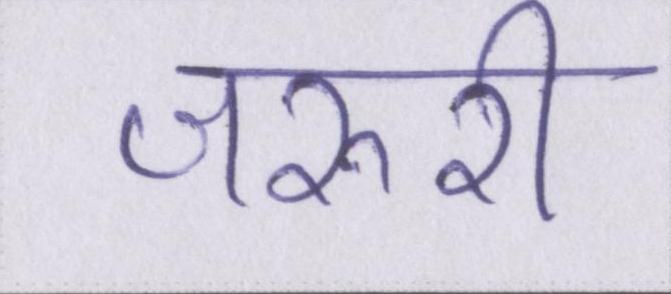 जरुरी